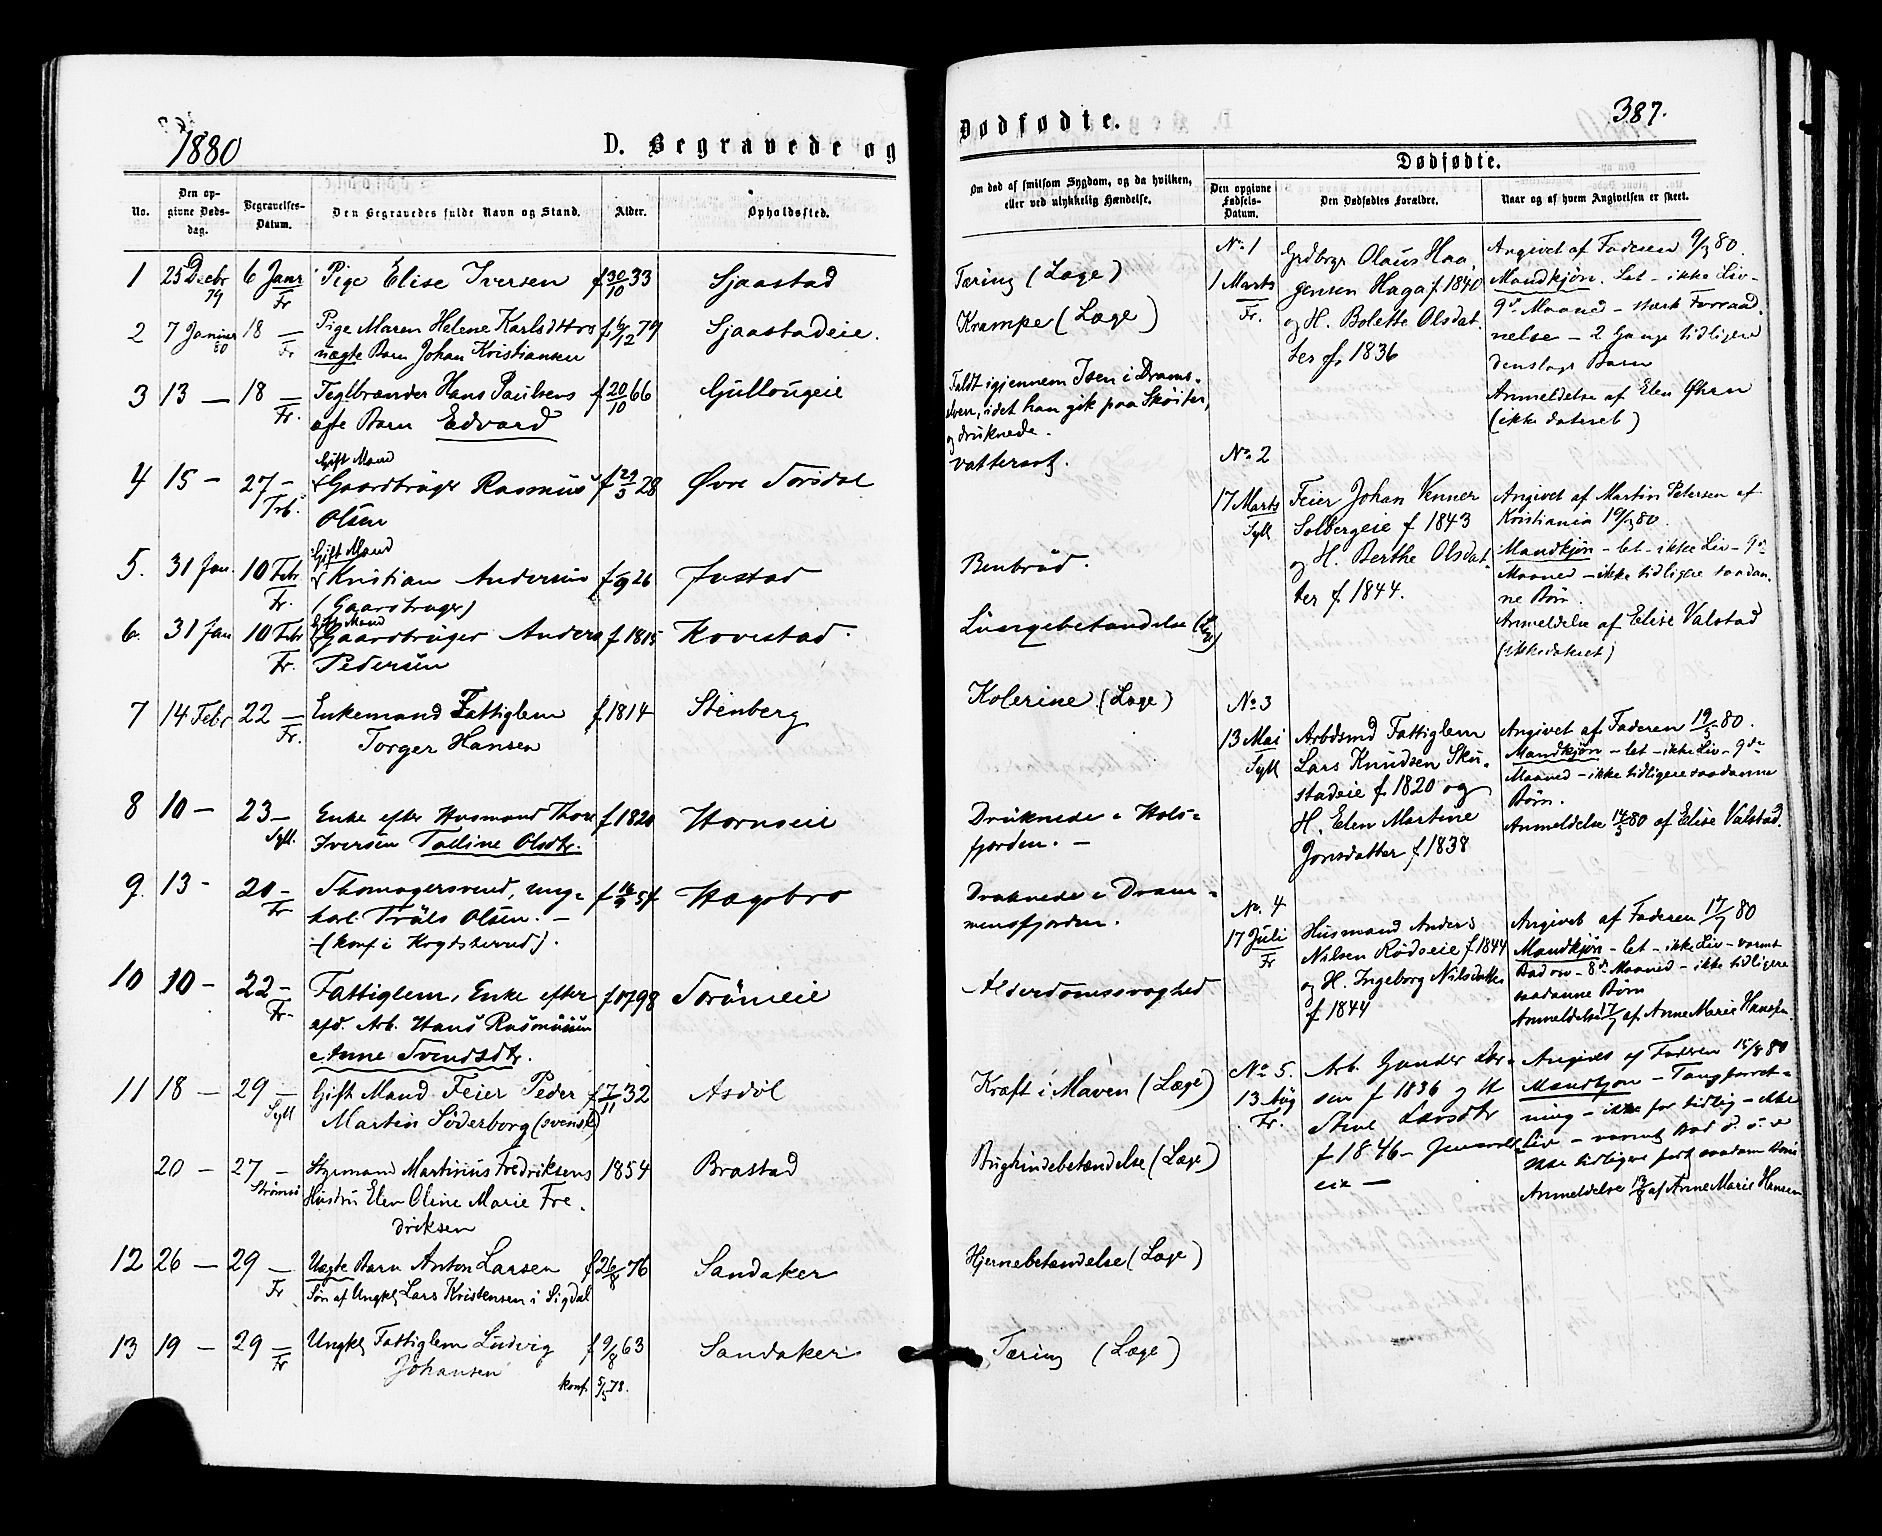 1880
D. Begravede og
No.
Den op-
givne Døds-
dag.
Begravelses-
Datum.
Den Begravedes fulde Navn og Stand.
Alder.
Opholdssted.
1 25 Decbr 79 6 Janr Fr Pige Elise Iversen f 30/10 33 Sjaastad
2 7 Januar 80 18 — Fr Pige Maren Helene Karlsdtrs f 6/12 79 Sjaastadeie.
uægte Barn Johan Kristiansen
3 13 — 18 — Fr. Teglbrænder Hans Paulsens f 20/10 66 Gullaugeie
ægte Barn Edvard
Gift Mand
4 15 — 27 — Gaardbruger Rasmus f 28 Øvre Torsdal
Olsen
Gift Mand
5. 31 Jan. 10 Febr Fr. Kristian Andersen 26 Justad
(Gaardbruger)
Gift Mand
6. 31 Jan 10 Febr Fr. Gaardbruger Anders f 1815 Kovestad
Pedersen
7 14 Febr 22 — Fr. Enkemand Fattiglem f 1814 Stenberg
Torger Hansen
8 10 — 23 — Syll. Enke efter Husmand Thor f 1820 Hornseie
Iversen Talline Olsdtr.
9. 13 - 20 — Fr Skomagersvend, ung- Hagabro
karl Tråls Olsen. —
(konf i Krydsherred).
10 10 — 22 — Fr. Fattiglem, Enke efter f 1798
afd. Arb. Hans Rasmussen
Anne Svendsdtr.
11 18 — 29 — Syll Gift Mand Feier Peder f 7/11 32 Asdøl
Martin Söderborg (svensk)
20 — 27 — Strømsø Styrmand Martinius Fredriksens 1854 Brastad
Hustru Elen Oline Marie Fre-
driksen
12 26 — 29 — Fr Uægte Barn Anton Larsen f 26/8 76 Sandaker
Søn af Ungkl Lars Kristensen i Sigdal
13 19 — 29 — Fr Ungkl Fattiglem Ludvig f 9/8 63 Sandaker
Johansen konf. 5/5 78.
Dødfødte.
387.
Om død af smitsom Sygdom, og da hvilken,
eller ved ulykkelig Hændelse.
Dødfødte.
Den opgivne
Fødsels-
Datum.
Den Dødfødtes Forældre.
Naar og af hvem Angivelsen er skeet.
Tæring (Læge)
Krampe (Læge)
Faldt igjennem Isen i Drams-
elven, idet han gik paa Skøiter,
og druknede.
Vattersot.
Benbrüd.
Lungebetændelse (Læge)
Kolerine (Læge)
Druknede i Hols-
fjorden. —
Druknede i Dram-
mensfjorden.
Alderdomssvaghed
Kræft i Maven (Læge)
Bughindebetændelse (Læge)
Hjernebetændelse (Læge)
Tæring (Læge)
No. 1
1 Marts
Fr.
Grdbrgr Olaus Haa-
gensen Haga f 1840
og H. Bolette Olsdat-
ter f. 1836
Angivet af Faderen 9/3 80.
Mandkjøn. Let — ikke Liv —
9de Maaned — stærk Forraad-
nelse — 2 Gange tidligere
denslags Barn
Anmeldelse af Elen Øhrn
(ikke dateret)
No. 2
17 Marts
Syll
Feier Johan Venner
Solbergeie f. 1843
og H. Berthe Olsdat-
ter f. 1844.
Angivet af Martin Petersen af
Kristiania 19/3 80.
Mandkjøn — let — ikke Liv — 9de
Maaned — ikke tidligere saadan-
ne Børn.
Anmeldelse af Elise Valstad
(ikke dateret)
No 3
13 Mai
Syll
Arbdsmd Fattiglem
Lars Knudsen Sku-
stadeie f. 1820 og
H. Elen Martine
Jonsdatter f 1838
Angivet af Faderen 19/5 80.
Mandkjøn — let — ikke Liv — 9de
Maaned — ikke tidligere saadanne
Børn.
Anmeldelse 14/5 80 af Elise Valstad.
No. 4
17 Juli
Fr
Husmand Anders
Nilsen Rødseie f 1844
og H. Ingeborg Nilsdatter
f 1844
Angivet af Faderen 17/7 80
Mandkjøn — let — ikke Liv — varmt
Bad — 8de Maaned — ikke tidligere
saadanne Børn
Anmeldelse 17/7 af Anne Marie Hansen
No 5.
13 Aug
Fr.
Arb. Gunder Lar-
sen f 1836 og H
Larsdtr
f 1846 —
eie —
Angives af Faderen 15/8 80
Mandkjøn — Tangforret-
ning — ikke for tidlig — ikke
Liv — varmt Bad o. s. v
ikke tidligere født saadan Børn
Anmeldelse 13/8 af Anne Marie Hansen